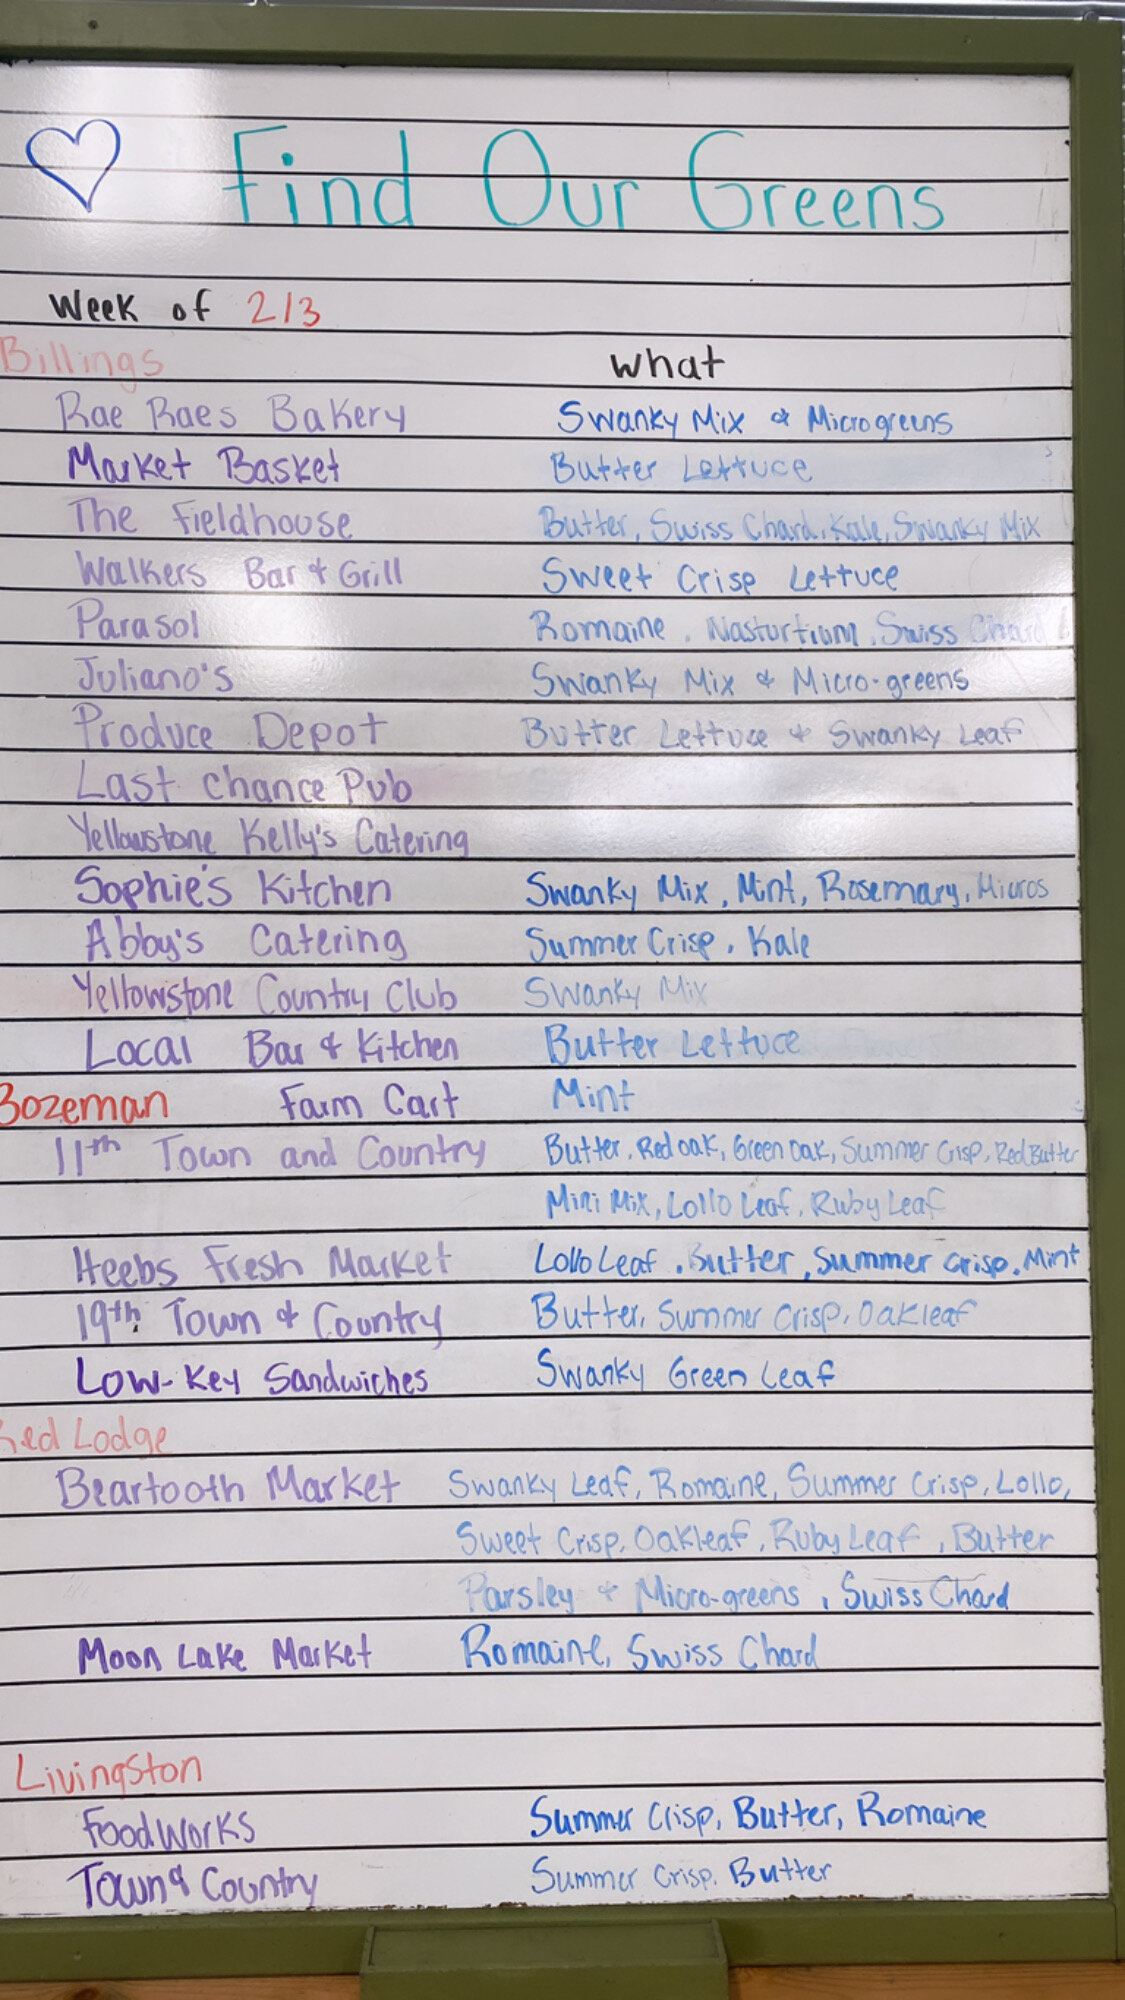 Find Our Greens
Week of 2/3
Billings What
Rae Raes Bakery Swanky Mix & Microgreens
Market Basket Butter Lettuce
The Fieldhouse Butter, Swiss Chard, Kale, Swanky Mix
Walkers Bar & Grill Sweet Crisp Lettuce
Parasol Romaine, Nasturtium, Swiss Chard
Juliano's Swanky Mix & Micro-greens
Produce Depot Butter Lettuce & Swanky Leaf
Last Chance Pub
Yellowstone Kelly's Catering
Sophie's Kitchen Swanky Mix, Mint, Rosemary, Micros
Abby's Catering Summer Crisp, Kale
Yellowstone Country Club Swanky Mix
Local Bar & Kitchen Butter Lettuce
Bozeman Farm Cart Mint
11th Town and Country Butter, Red oak, Green Oak, Summer Crisp, Red Butter
Mini Mix, Lollo Leaf, Ruby Leaf
Heebs Fresh Market Lollo Leaf, Butter, Summer Crisp, Mint
19th Town & Country Butter, Summer Crisp, Oakleaf
Low-Key Sandwiches Swanky Green Leaf
Red Lodge
Beartooth Market Swanky Leaf, Romaine, Summer Crisp, Lollo,
Sweet Crisp, Oakleaf, Ruby Leaf, Butter
Parsley & Micro-greens, Swiss Chard
Moon Lake Market Romaine, Swiss Chard
Livingston
FoodWorks Summer Crisp, Butter, Romaine
Town & Country Summer Crisp, Butter